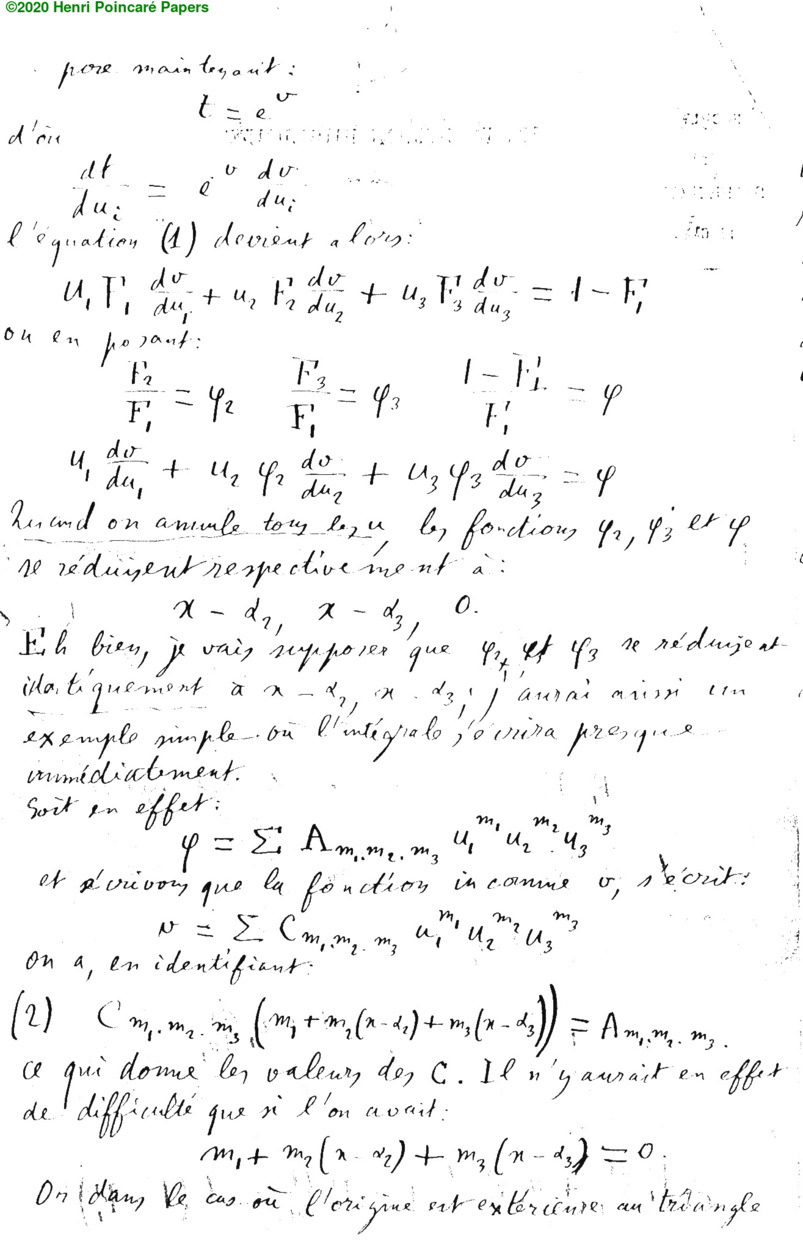 ©2020 Henri Poincaré Papers
pose maintenant :
t = e^v
d'où
dt/du_i = e^v dv/du_i
l'équation (1) devient alors:
u_1 F_1 dv/du_1 + u_2 F_2 dv/du_2 + u_3 F_3 dv/du_3 = 1 - F_1
ou en posant:
F_2/F_1 = φ_2 F_3/F_1 = φ_3 (1 - F_1)/F_1 = φ
u_1 dv/du_1 + u_2 φ_2 dv/du_2 + u_3 φ_3 dv/du_3 = φ
Quand on annule tous les u, les fonctions φ_2, φ_3 et φ
se réduisent respectivement à :
x - α_2, x - α_3, 0.
Eh bien, je vais supposer que φ_2 et φ_3 se réduisent
identiquement à x - α_2, x - α_3; j'aurai ainsi un
exemple simple où l'intégrale s'écrira presque
immédiatement.
Soit en effet:
φ = Σ A_{m_1.m_2.m_3} u_1^{m_1} u_2^{m_2} u_3^{m_3}
et écrivons que la fonction inconnue v, s'écrit:
v = Σ C_{m_1.m_2.m_3} u_1^{m_1} u_2^{m_2} u_3^{m_3}
on a, en identifiant:
(2) C_{m_1.m_2.m_3} (m_1 + m_2(x-α_2) + m_3(x-α_3)) = A_{m_1.m_2.m_3}.
ce qui donne les valeurs des C. Il n'y aurait en effet
de difficulté que si l'on avait:
m_1 + m_2(x-α_2) + m_3(x-α_3) = 0.
Or dans le cas où l'origine est extérieure au triangle